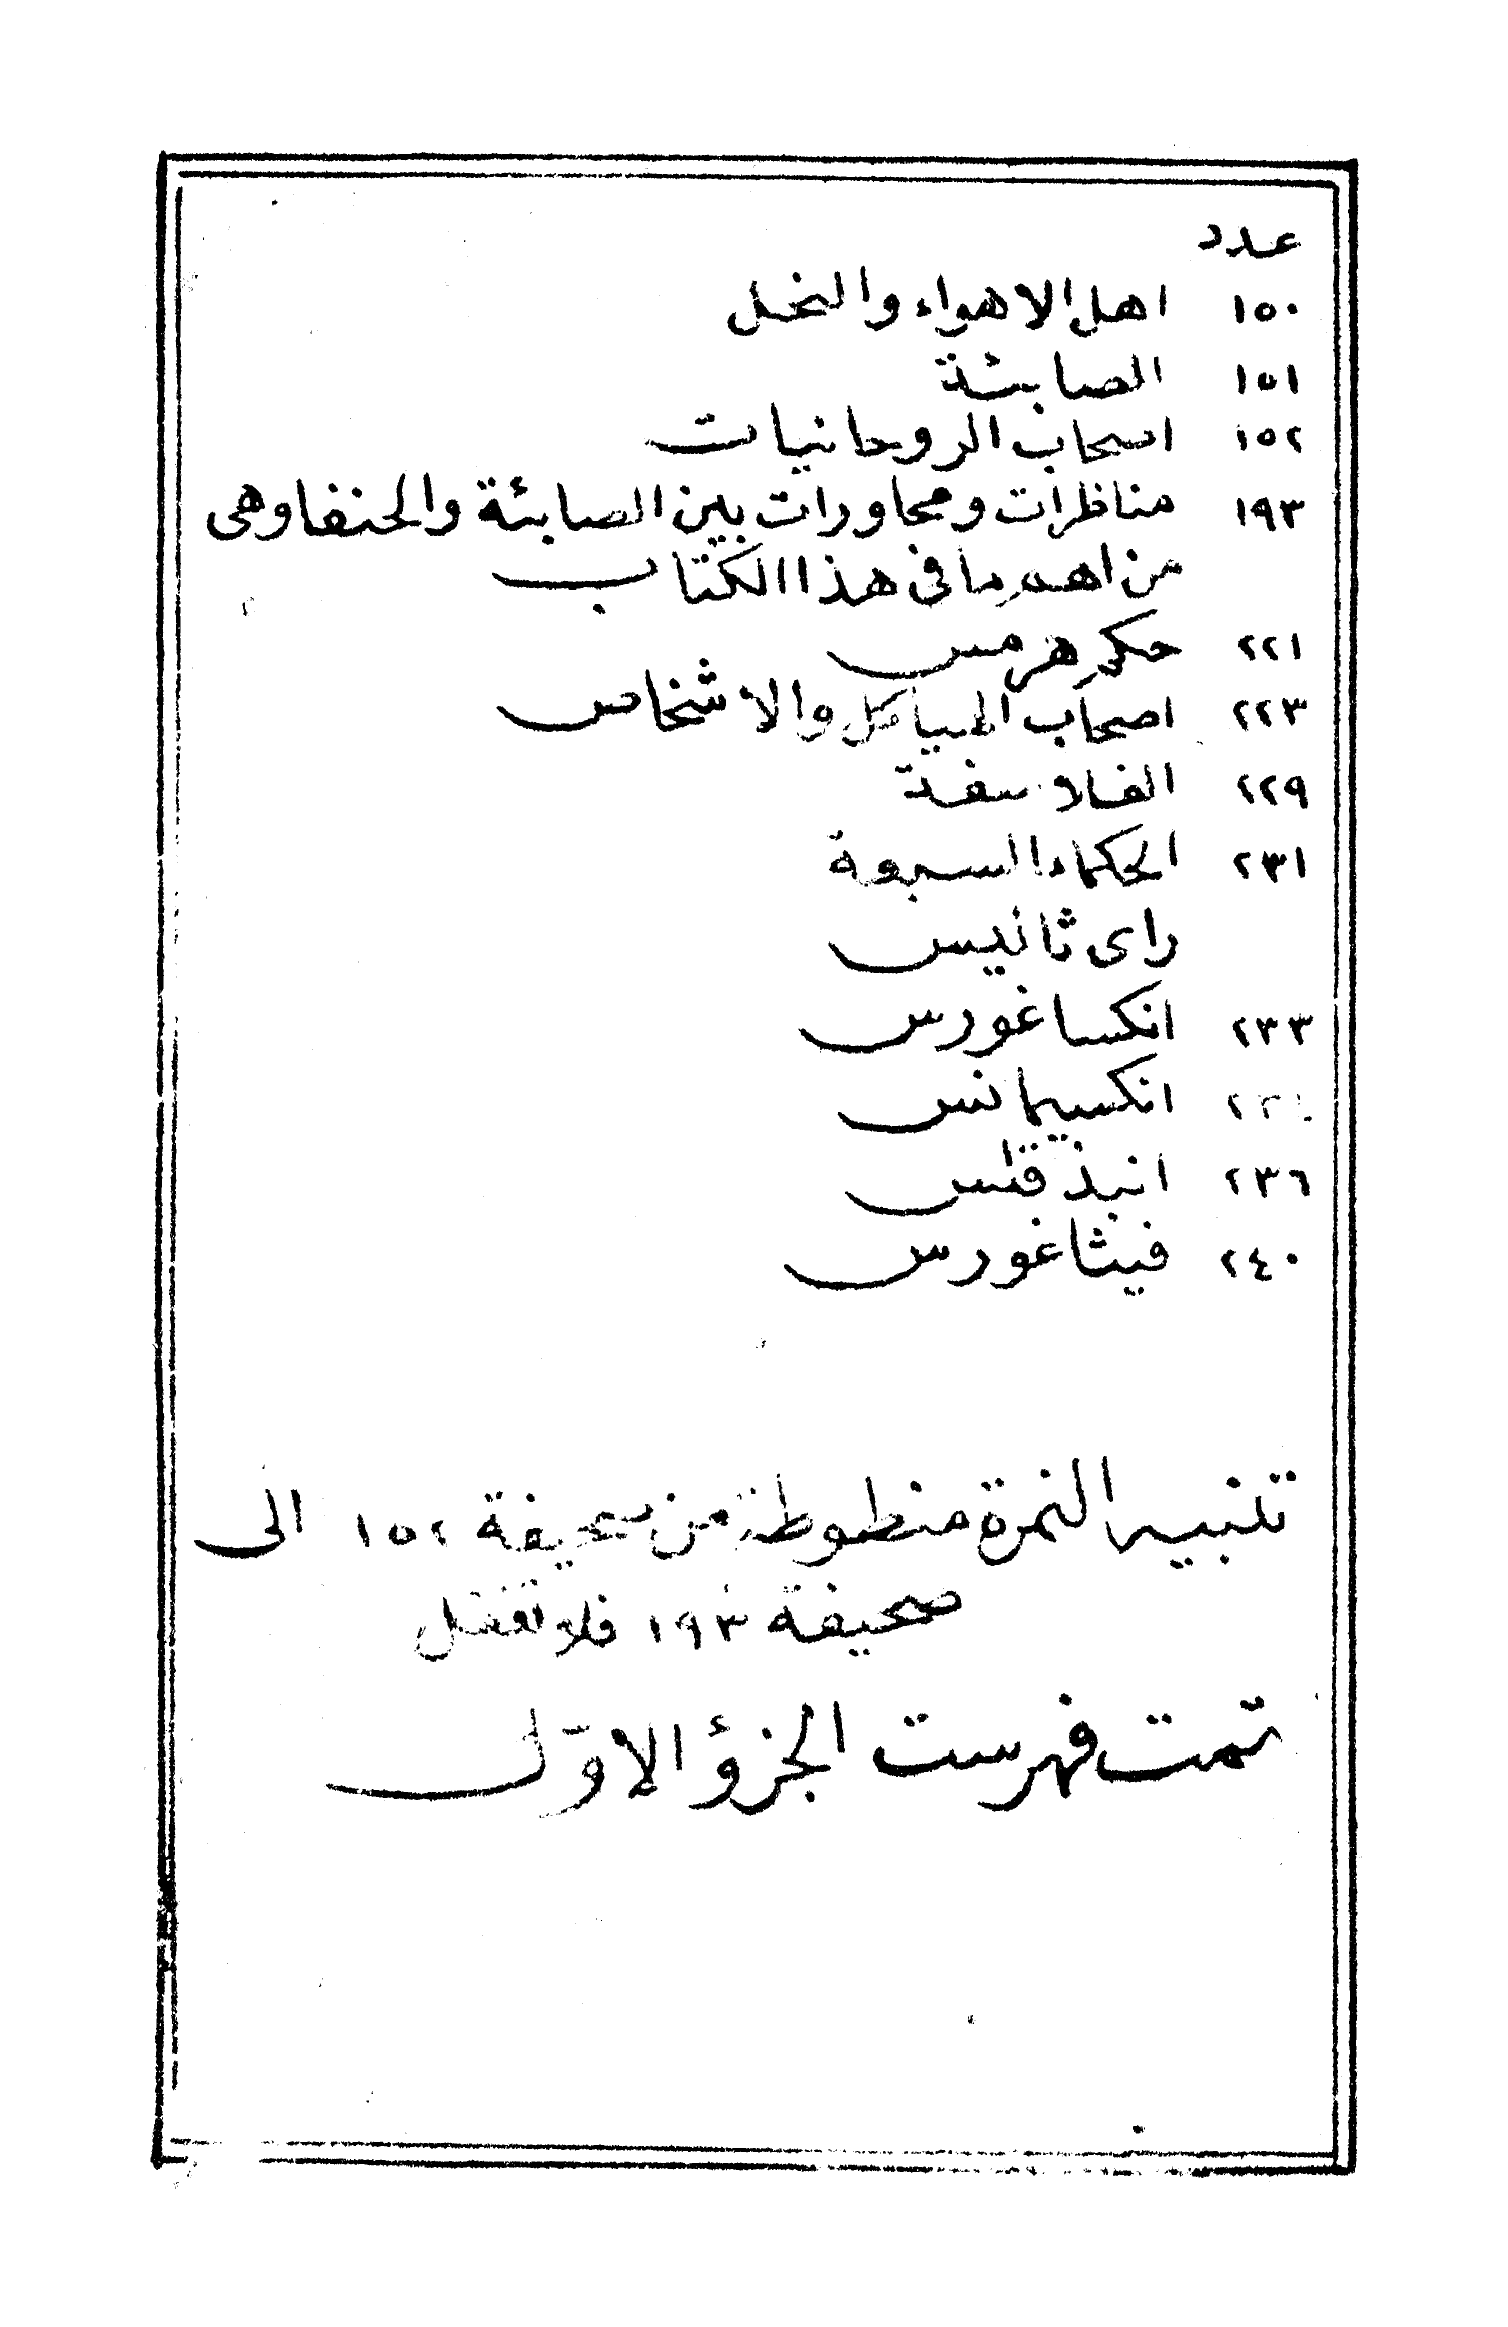 عدد
١٥٠ اهل الاهواء والنحل
١٥١ الصابئة
١٥٢ اصحاب الروحانيات
١٩٣ مناظرات ومحاورات بين الصابئة والحنفا وهى
من اهم ما فى هذا الكتاب
٢٢١ حكم هرمس
٢٢٣ اصحاب الهياكل والاشخاص
٢٢٩ الفلاسفة
٢٣١ الحكماء السبعة
راى ثاليس
٢٣٣ انكساغورس
٢٣٤ انكسيمانس
٢٣٦ انبذقلس
٢٤٠ فيثاغورس
تنبيه النمرة منطوطة من صحيفة ١٥٢ الى
صحيفة ١٩٣ فلا تغفل
تمت فهرست الجزؤ الاوّل